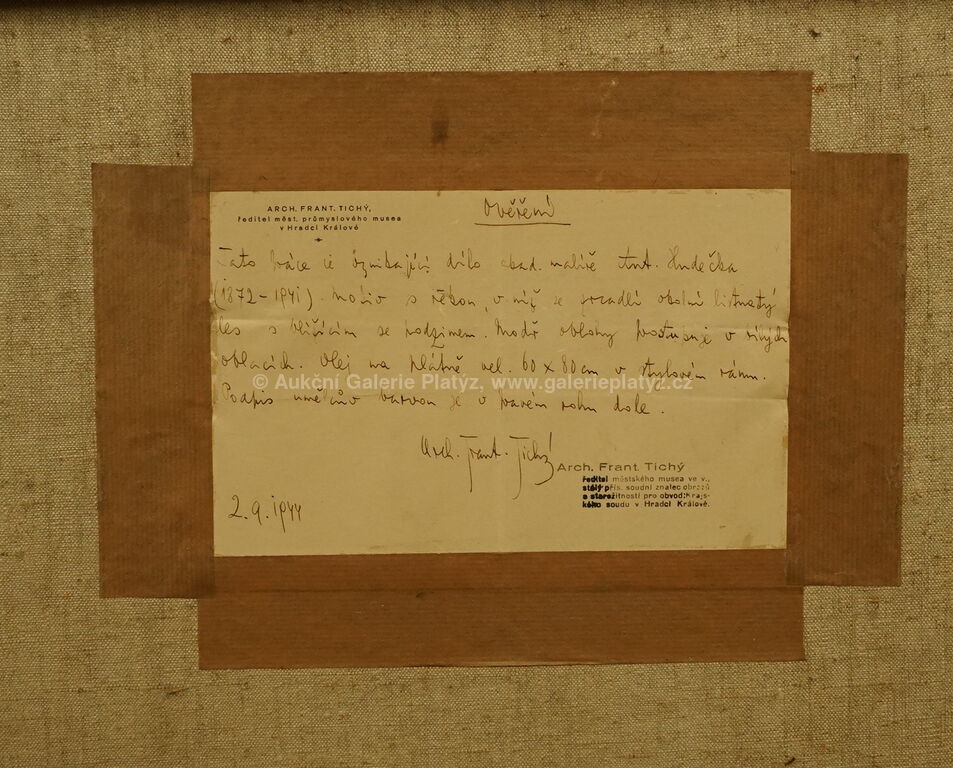 ARCH. FRANT. TICHÝ,
ředitel měst. průmyslového musea
v Hradci Králové
Ověření
Tato práce je vynikající dílo akad. malíře Ant. Hudečka
(1872–1941). Motiv s řekou, v níž se zrcadlí okolní listnatý
les s blížícím se podzimem. Modř oblohy prostupuje v bílých
oblacích. Olej na plátně vel. 60 x 80 cm v stylovém rámu.
© Aukční Galerie Platýz, www.galerieplatyz.cz
Podpis umělcův barvou je v pravém rohu dole.
Arch. Frant. Tichý
Arch. Frant. Tichý
ředitel městského musea ve v.,
stálý přís. soudní znalec obrazů
a starožitností pro obvod Kraj-
ského soudu v Hradci Králové.
2.9.1944